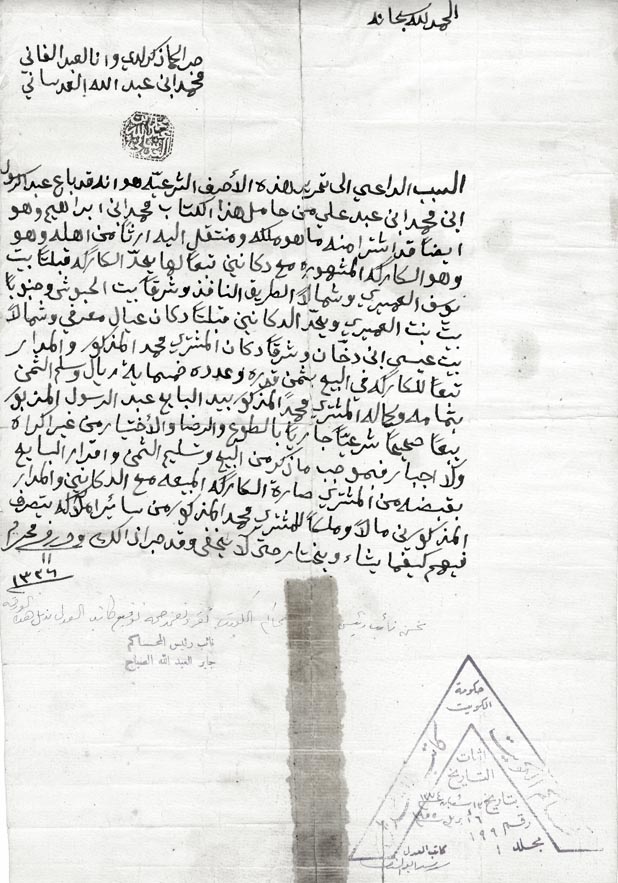 الحمد لله سبحانه
صح الجاز كر لدي وانا العبد الفاني
محمد ابن عبد الله العدساني
السبب الداعي الى تحرير هذه الأحرف الشرعيه هو انه قد باع عبد الرسول
ابن محمد ابن عبد علي من حامل هذا الكتاب محمد ابن ابراهيم وهو
ايضاً قد اشترا منه ما هو ملكه ومنتقل اليه ارثاً من اهله وهو
وهو الكاركه المشهوره مع دكانين تبعاً لها يحدّ الكاركه قبلتاً بيت
يوسف العميري وشمالاً الطريق النافذ وشرقاً بيت الحبوشي وجنوباً
بيت بنت العميري ويحدّ الدكانين قبلتاً دكان عيال معرفي وشمالاً
بيت عيسى ابن دخّان وشرقاً دكان المشتري محمد المذكور والمدار
تبعاً للكاركه في البيع بثمن قدره وعدده ريال وسلم الثمن
بتمامه وكماله المشتري محمد المذكور بيد البايع عبد الرسول المذكور
بيعاً صحيحاً شرعياً جارياً بالطوع والرضا والأختيار من غير اكراه
ولا اجبار فبموجب ما ذكر من البيع وتسليم الثمن واقرار البايع
بقبضه من المشتري صارة الكاركه المبيعه مع الدكانين والمدار
المذكورين مالاً وملكاً للمشتري محمد المذكور من سائر املاكه يتصرف
فيهم كيفما يشاء ويختار حتى لا يخفى وقد جرا ذالك وحرر في محرم
١١
١٣٣٦
نحن نائب رئيس
نائب رئيس المحاكم
جابر العبد الله الصباح
حكومة
الكويت
كاتب
اثبات
التاريخ
بتاريخ
رقم ١٩٩
مجلد ١
كاتب العدل